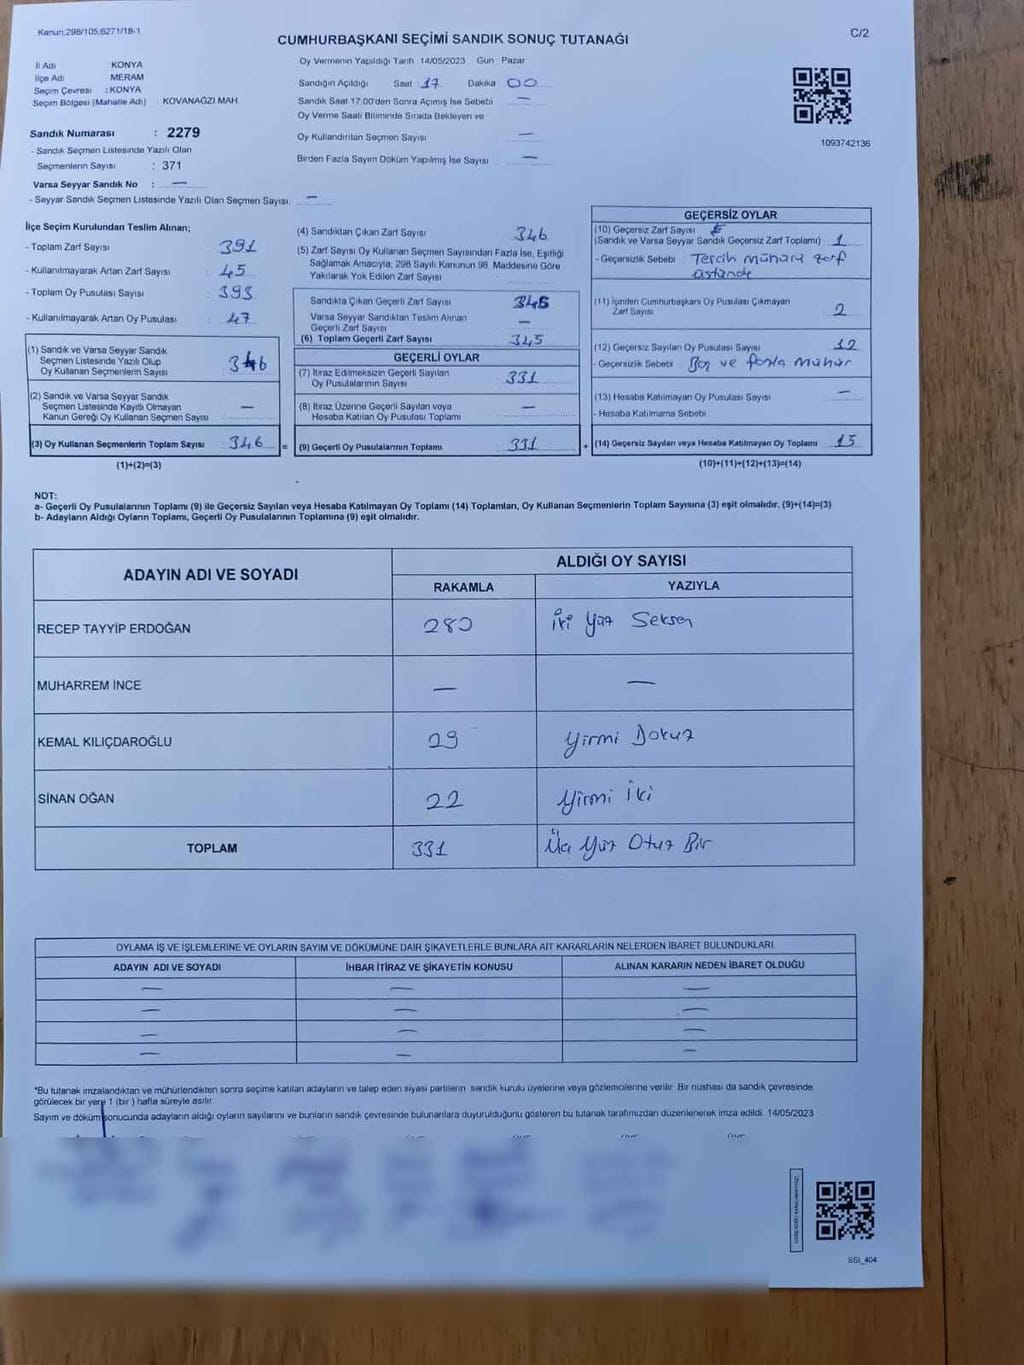 Kanun:298/105,6271/18-1
CUMHURBAŞKANI SEÇİMİ SANDIK SONUÇ TUTANAĞI
C/2
İl Adı : KONYA
İlçe Adı : MERAM
Seçim Çevresi : KONYA
Seçim Bölgesi (Mahalle Adı) : KOVANAĞZI MAH.
Sandık Numarası : 2279
- Sandık Seçmen Listesinde Yazılı Olan
Seçmenlerin Sayısı : 371
Varsa Seyyar Sandık No : —
- Seyyar Sandık Seçmen Listesinde Yazılı Olan Seçmen Sayısı: —
Oy Vermenin Yapıldığı Tarih 14/05/2023 Gün Pazar
Sandığın Açıldığı Saat 17 Dakika 00
Sandık Saat 17:00'den Sonra Açımış İse Sebebi —
Oy Verme Saati Bitiminde Sırada Bekleyen ve
Oy Kullandırılan Seçmen Sayısı —
Birden Fazla Sayım Döküm Yapılmış İse Sayısı —
1093742136
İlçe Seçim Kurulundan Teslim Alınan;
- Toplam Zarf Sayısı : 391
- Kullanılmayarak Artan Zarf Sayısı : 45
- Toplam Oy Pusulası Sayısı : 393
- Kullanılmayarak Artan Oy Pusulası : 47
(1) Sandık ve Varsa Seyyar Sandık
Seçmen Listesinde Yazılı Olup
Oy Kullanan Seçmenlerin Sayısı : 346
(2) Sandık ve Varsa Seyyar Sandık
Seçmen Listesinde Kayıtlı Olmayan
Kanun Gereği Oy Kullanan Seçmen Sayısı —
(3) Oy Kullanan Seçmenlerin Toplam Sayısı : 346 =
(1)+(2)=(3)
(4) Sandıktan Çıkan Zarf Sayısı 346
(5) Zarf Sayısı Oy Kullanan Seçmen Sayısından Fazla İse, Eşitliği
Sağlamak Amacıyla, 298 Sayılı Kanunun 98. Maddesine Göre
Yakılarak Yok Edilen Zarf Sayısı
Sandıkta Çıkan Geçerli Zarf Sayısı 345
Varsa Seyyar Sandıktan Teslim Alınan
Geçerli Zarf Sayısı —
(6) Toplam Geçerli Zarf Sayısı 345
GEÇERLİ OYLAR
(7) İtiraz Edilmeksizin Geçerli Sayılan
Oy Pusulalarının Sayısı 331
(8) İtiraz Üzerine Geçerli Sayılan veya
Hesaba Katılan Oy Pusulası Toplamı —
(9) Geçerli Oy Pusulalarının Toplamı 331 +
GEÇERSİZ OYLAR
(10) Geçersiz Zarf Sayısı
(Sandık ve Varsa Seyyar Sandık Geçersiz Zarf Toplamı) 1
- Geçersizlik Sebebi : Tercih mührü zarf
üstünde
(11) İçinden Cumhurbaşkanı Oy Pusulası Çıkmayan
Zarf Sayısı 2
(12) Geçersiz Sayılan Oy Pusulası Sayısı 12
- Geçersizlik Sebebi : Boş ve fazla mühür
(13) Hesaba Katılmayan Oy Pusulası Sayısı —
- Hesaba Katılmama Sebebi
(14) Geçersiz Sayılan veya Hesaba Katılmayan Oy Toplamı 15
(10)+(11)+(12)+(13)=(14)
NOT:
a- Geçerli Oy Pusulalarının Toplamı (9) ile Geçersiz Sayılan veya Hesaba Katılmayan Oy Toplamı (14) Toplamları, Oy Kullanan Seçmenlerin Toplam Sayısına (3) eşit olmalıdır. (9)+(14)=(3)
b- Adayların Aldığı Oyların Toplamı, Geçerli Oy Pusulalarının Toplamına (9) eşit olmalıdır.
ADAYIN ADI VE SOYADI
ALDIĞI OY SAYISI
RAKAMLA YAZIYLA
RECEP TAYYİP ERDOĞAN 280 İki Yüz Seksen
MUHARREM İNCE — —
KEMAL KILIÇDAROĞLU 29 Yirmi Dokuz
SİNAN OĞAN 22 Yirmi İki
TOPLAM 331 Üç Yüz Otuz Bir
OYLAMA İŞ VE İŞLEMLERİNE VE OYLARIN SAYIM VE DÖKÜMÜNE DAİR ŞİKAYETLERLE BUNLARA AİT KARARLARIN NELERDEN İBARET BULUNDUKLARI
ADAYIN ADI VE SOYADI İHBAR İTİRAZ VE ŞİKAYETİN KONUSU ALINAN KARARIN NEDEN İBARET OLDUĞU
— — —
— — —
— — —
— — —
*Bu tutanak imzalandıktan ve mühürlendikten sonra seçime katılan adayların ve talep eden siyasi partilerin sandık kurulu üyelerine veya gözlemcilerine verilir. Bir nüshası da sandık çevresinde
görülecek bir yere 1 (bir ) hafta süreyle asılır.
Sayım ve döküm sonucunda adayların aldığı oyların sayılarını ve bunların sandık çevresinde bulunanlara duyurulduğunu gösteren bu tutanak tarafımızdan düzenlenerek imza edildi. 14/05/2023
SSI_404